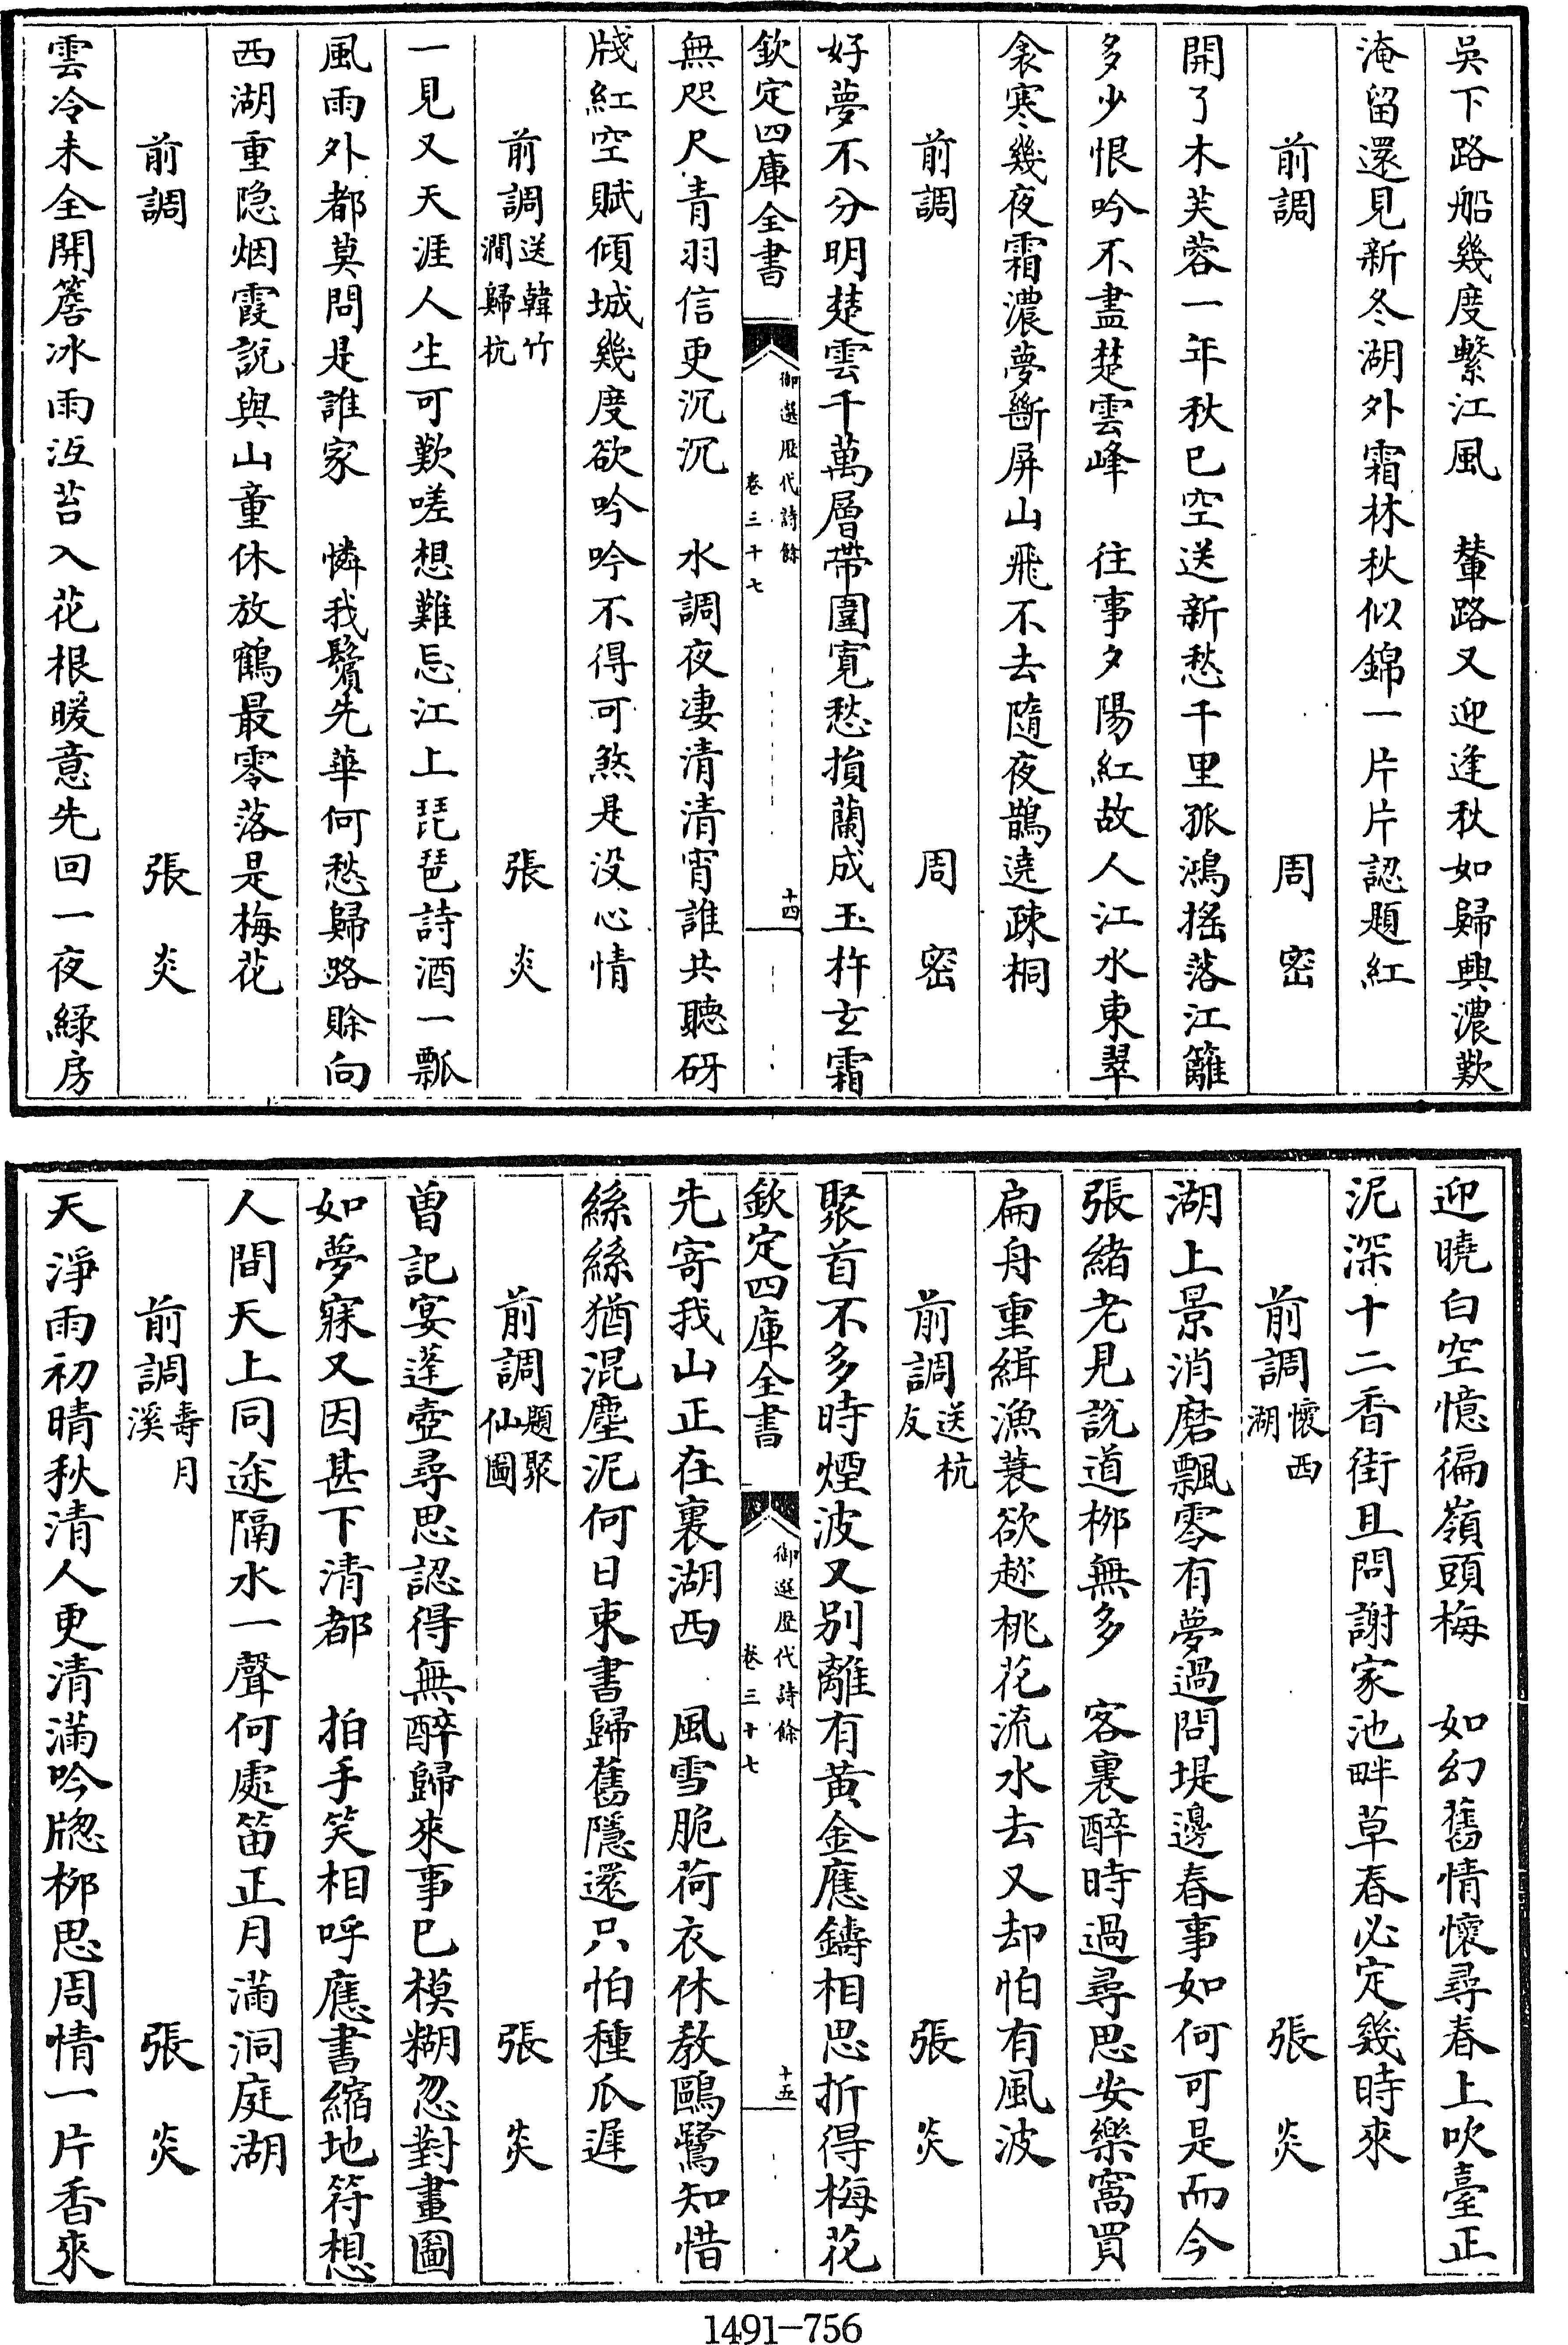 吳下路船幾度繫江風　輦路又迎逢秋如歸興濃歎
淹留還見新冬湖外霜林秋似錦一片片認題紅
前調　周密
開了木芙蓉一年秋已空送新愁千里孤鴻搖落江籬
多少恨吟不盡楚雲峰　往事夕陽紅故人江水東翠
衾寒幾夜霜濃夢斷屏山飛不去隨夜鵲遶疎桐
前調　周密
好夢不分明楚雲千萬層帶圍寬愁損蘭成玉杵玄霜
欽定四庫全書　御選歷代詩餘　卷三十七　十四
無咫尺青羽信更沉沉　水調夜凄清清宵誰共聽砑
牋紅空賦傾城幾度欲吟吟不得可煞是没心情
前調送韓竹澗歸杭　張炎
一見又天涯人生可歎嗟想難忘江上琵琶詩酒一瓢
風雨外都莫問是誰家　憐我鬢先華何愁歸路賒向
西湖重隱烟霞說與山童休放鶴最零落是梅花
前調　張炎
雲冷未全開簷冰雨沍苔入花根暖意先回一夜緑房
迎曉白空憶徧嶺頭梅　如幻舊情懷尋春上吹臺正
泥深十二香街且問謝家池畔草春必定幾時來
前調懷西湖　張炎
湖上景消磨飄零有夢過問堤邊春事如何可是而今
張緒老見說道栁無多　客裏醉時過尋思安樂窩買
扁舟重緝漁蓑欲趂桃花流水去又却怕有風波
前調送杭友　張炎
聚首不多時煙波又别離有黄金應鑄相思折得梅花
欽定四庫全書　御選歷代詩餘　卷三十七　十五
先寄我山正在裏湖西　風雪脆荷衣休教鷗鷺知惜
絲絲猶混塵泥何日束書歸舊隱還只怕種瓜遲
前調題聚仙圖　張炎
曽記宴蓬壺尋思認得無醉歸來事已模糊忽對畫圖
如夢寐又因甚下清都　拍手笑相呼應書縮地符想
人間天上同途隔水一聲何處笛正月滿洞庭湖
前調壽月溪　張炎
天淨雨初晴秋清人更清滿吟牎栁思周情一片香來
1491-756